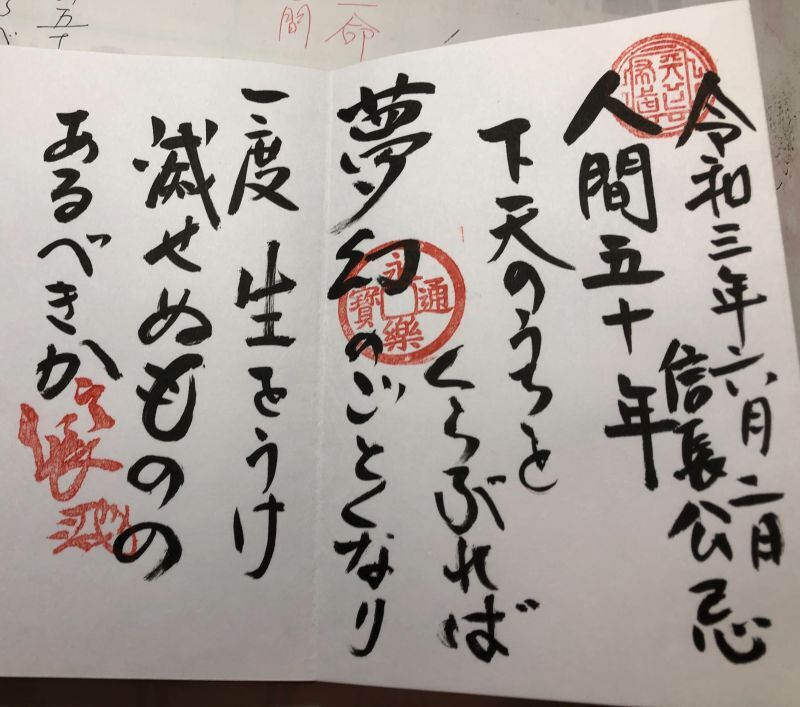 令和三年六月二日
信長公忌
人間五十年
下天のうちを
くらぶれば
夢幻のごとくなり
一度生をうけ
滅せぬものの
あるべきか
永樂通寳
命
間
五十